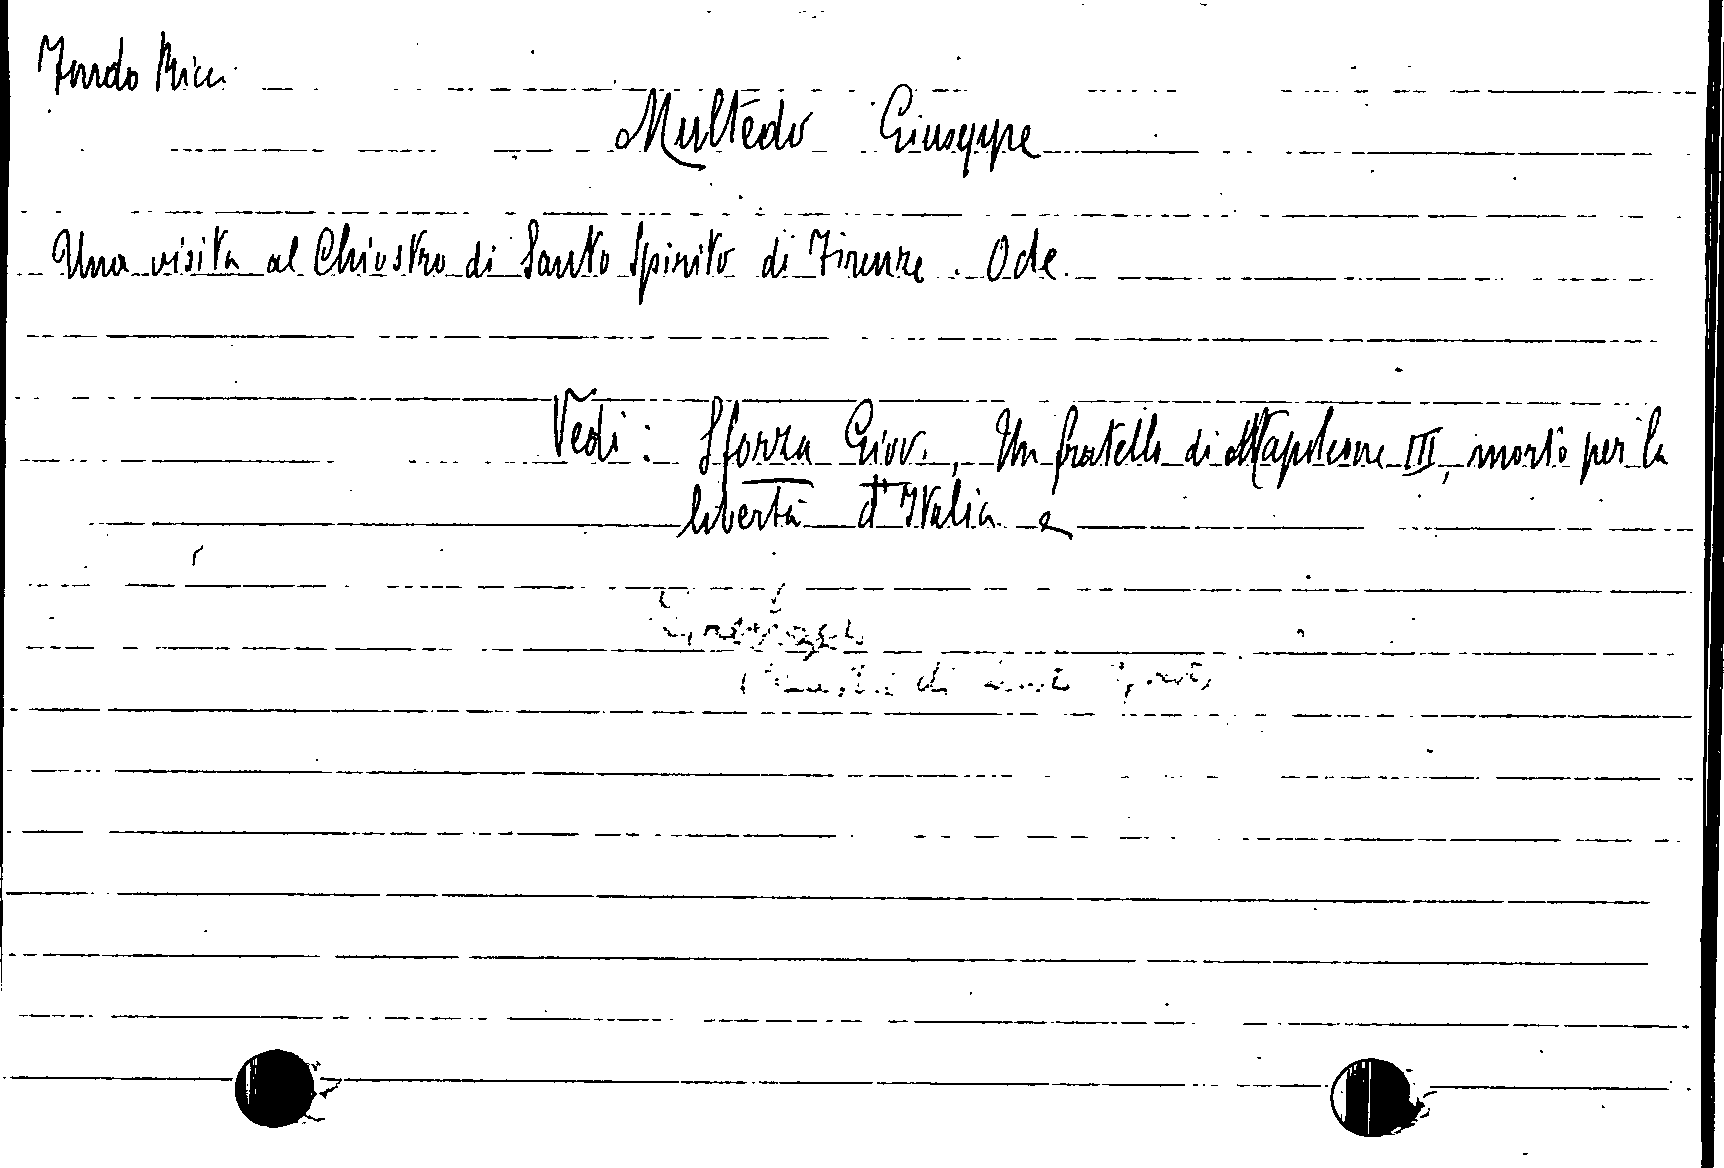 Fondo Ricci
Multedo Giuseppe
Una visita al Chiostro di Santo Spirito di Firenze. Ode.
Vedi: Sforza Giov., Un fratello di Napoleone III, morto per la
libertà d'Italia